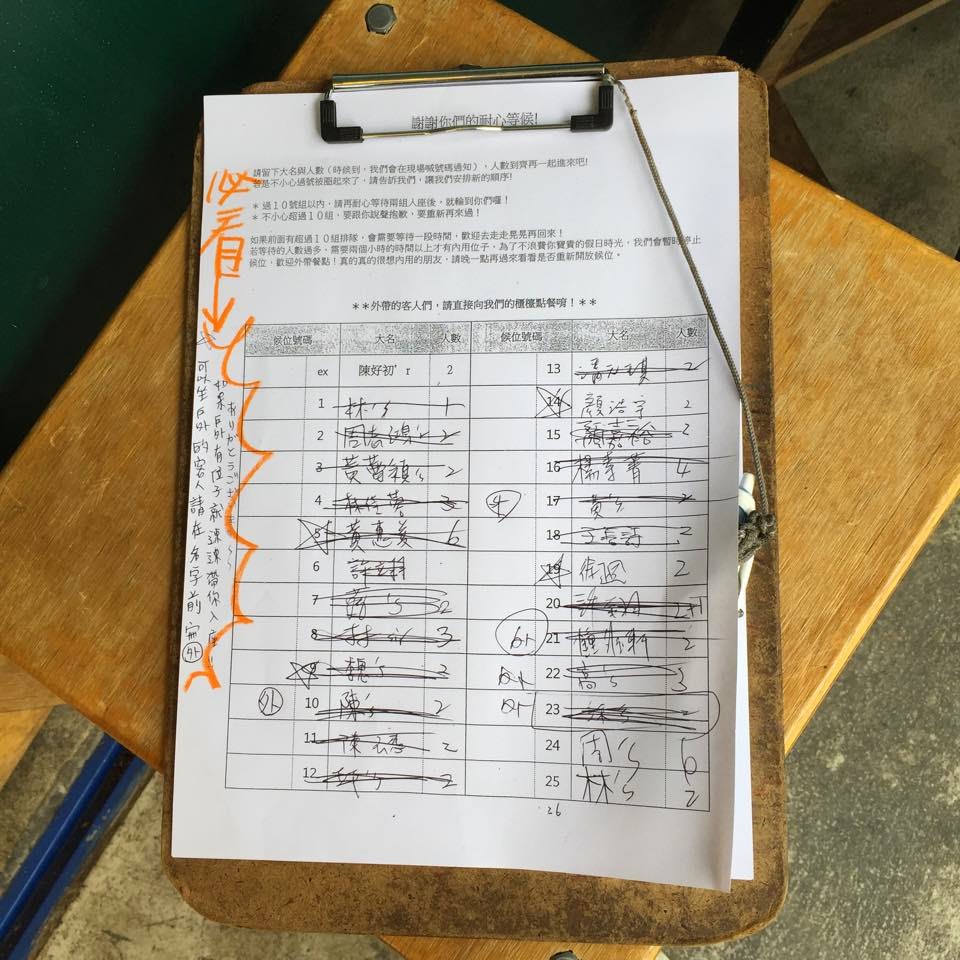 謝謝你們的耐心等候!
請留下大名與人數（時候到，我們會在現場喊號碼通知），人數到齊再一起進來吧!
若是不小心過號被圈起來了，請告訴我們，讓我們安排新的順序!
* 過10號組以內，請再耐心等待兩組入座後，就輪到你們囉！
* 不小心超過10組，要跟你說聲抱歉，要重新再來過！
如果前面有超過10組排隊，會需要等待一段時間，歡迎去走走晃晃再回來！
若等待的人數過多、需要兩個小時的時間以上才有內用位子，為了不浪費你寶貴的假日時光，我們會暫時停止
候位，歡迎外帶餐點！真的真的很想內用的朋友，請晚一點再過來看看是否重新開放候位。
**外帶的客人們，請直接向我們的櫃檯點餐唷！**
必看
可以坐戶外的客人請在名字前寫外
如果戶外有位子就速速帶你入座
ありがとうございます
候位號碼 大名 人數
ex 陳好初's 2
1 林's 1
2 周志鴻's 2
3 黃's 2
4 林佳 3
5 黃惠 6
6 許
7 2
8 林 3
9 2
外 10 陳's 2
11 陳 2
12 2
候位號碼 大名 人數
13 2
14 顏浩宇 2
15 顏嘉裕 2
16 楊 菁 4
17 黃's
18 2
19 2
20
外 21 2
外 22 高's 3
外 23
24 周's 6
25 林's 2
26